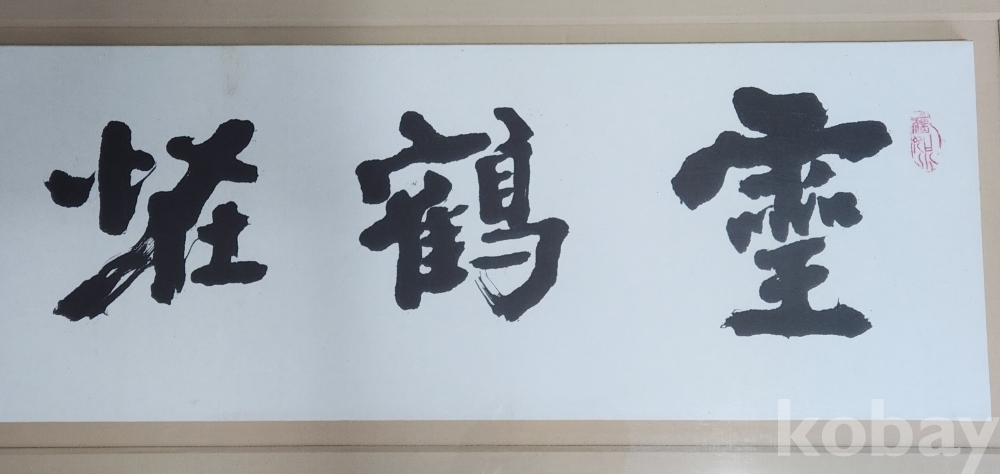 靈鶴莊
kobay